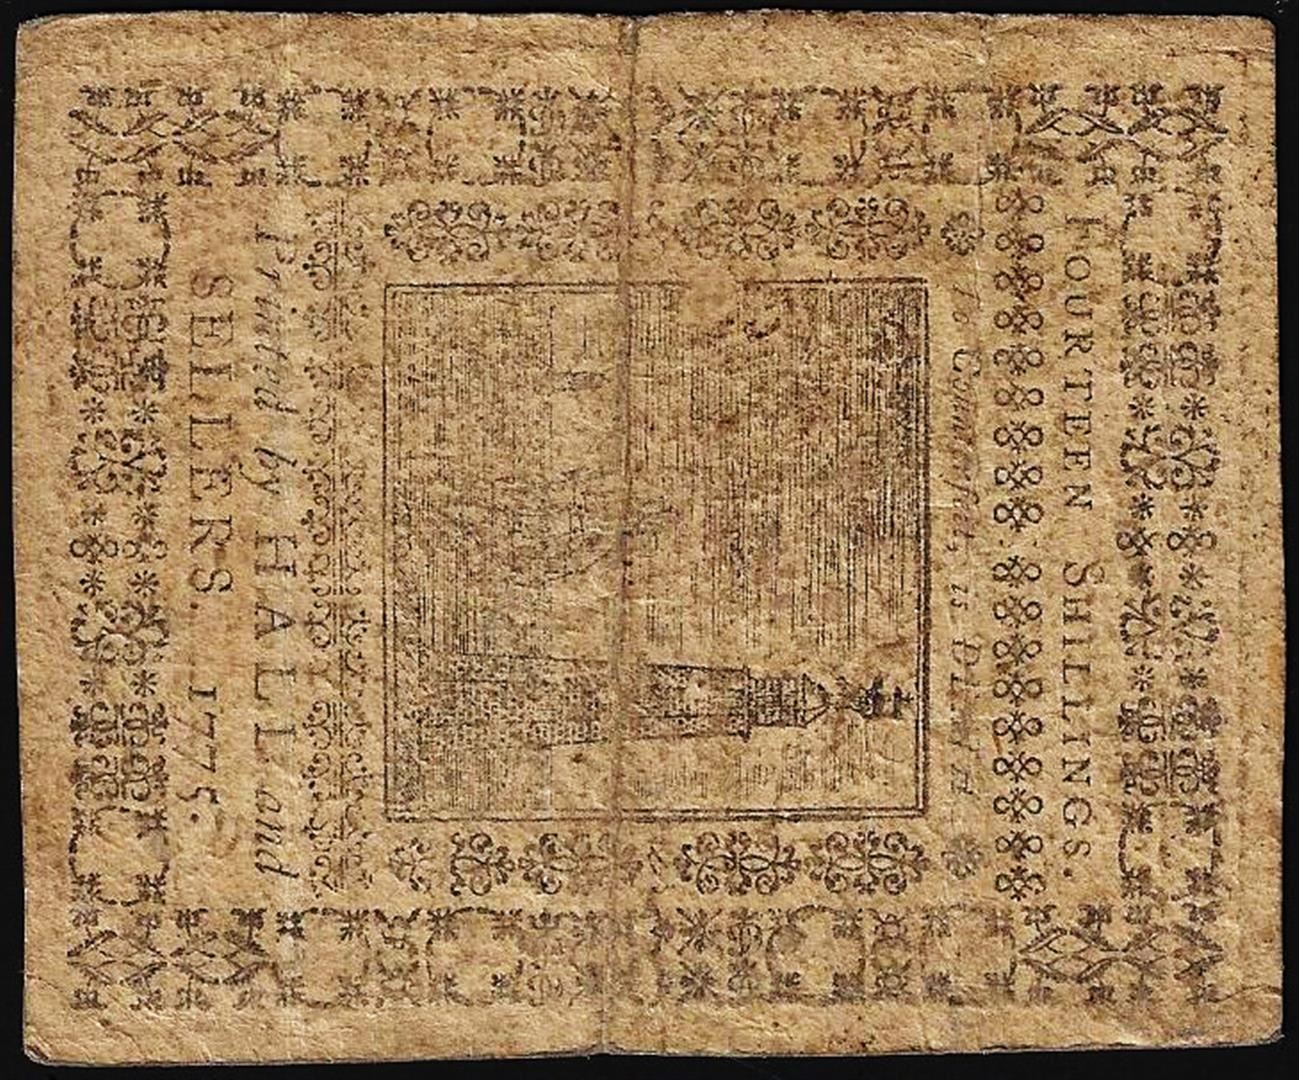 FOURTEEN SHILLINGS.
To Counterfeit, is DEATH
Printed by HALL and
SELLERS. 1775.